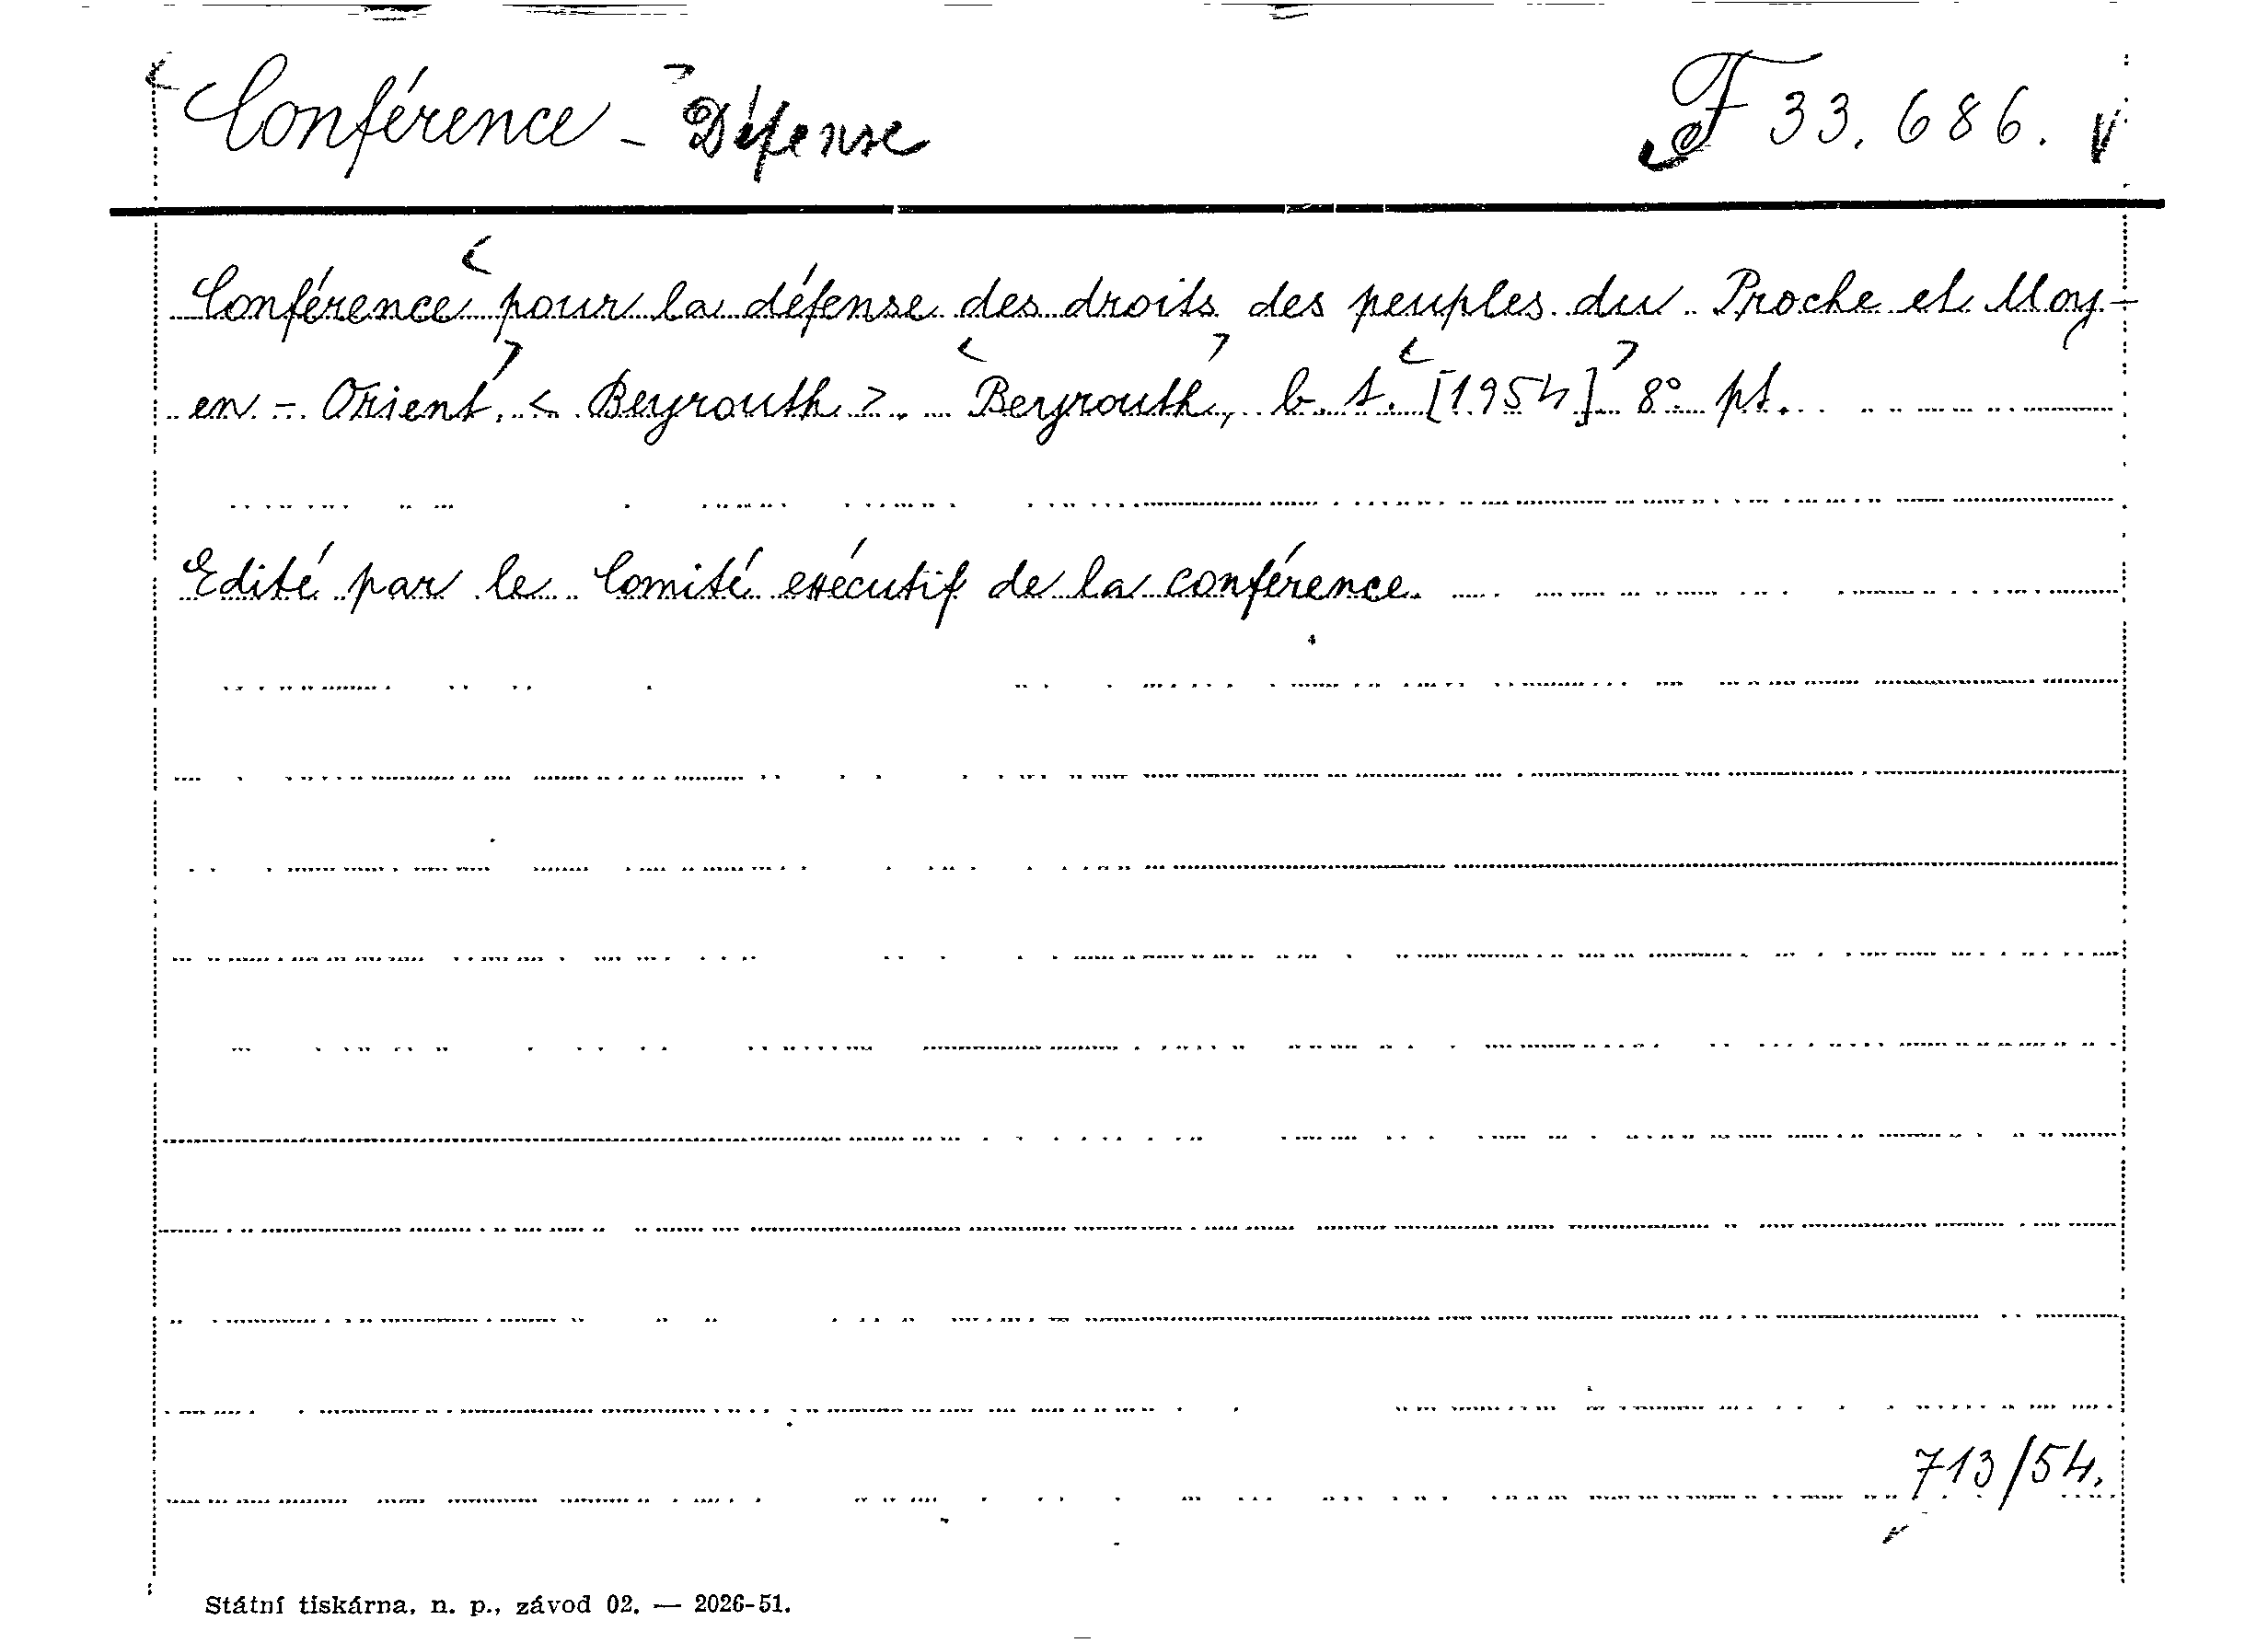 Conférence - Défense F 33.686.
Conférence pour la défense des droits des peuples du Proche et Moy-
en - Orient, < Beyrouth >. Beyrouth, b. t. [1954] 8° pt.
Edité par le Comité exécutif de la conférence.
713/54.
Státní tiskárna, n. p., závod 02. — 2026-51.